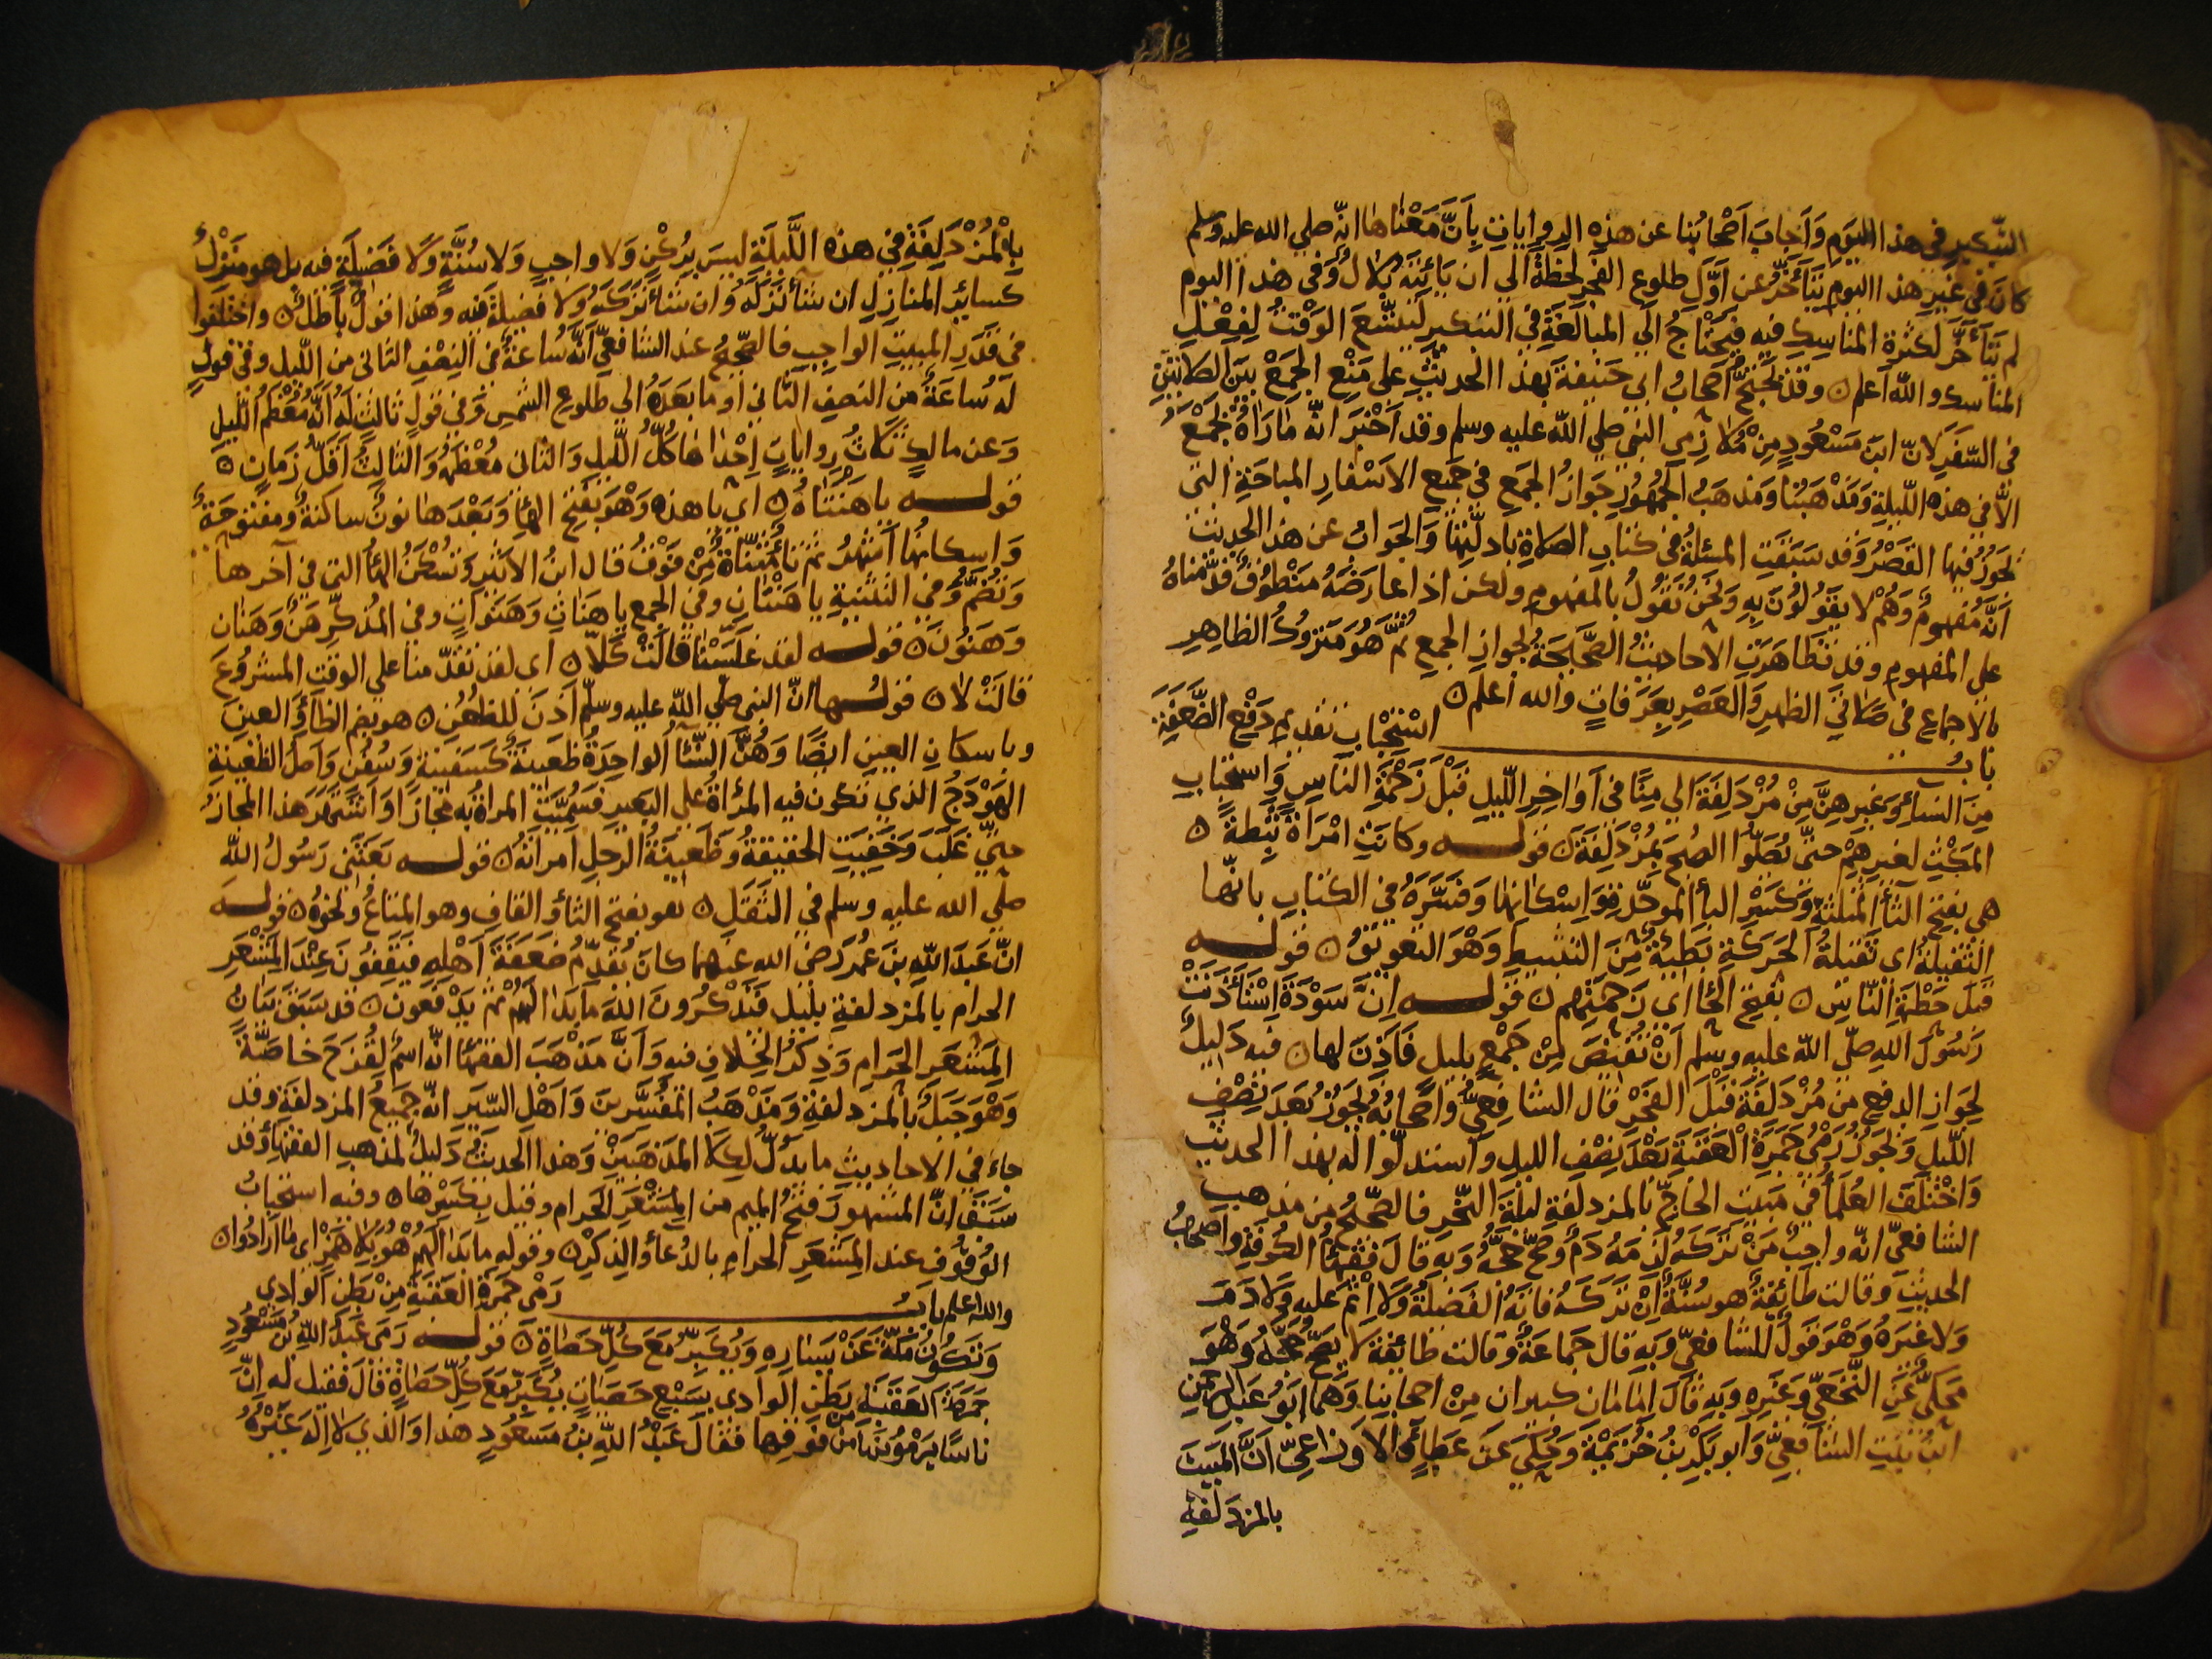 التبكير في هذا اليوم وأجاب أصحابنا عن هذه الروايات بأن معناها انه صلى الله عليه وسلم
كان في غير هذا اليوم يتأخر عن أول طلوع الفجر لحظة الى ان يأتيه بلال وفي هذا اليوم
لم يتأخر لكثرة المناسك فيه فيحتاج الى المبالغة في التبكير ليتسع الوقت لفعل
المناسك والله أعلم ٥ وقد يحتج أصحاب ابي حنيفة بهذا الحديث على منع الجمع بين الصلاتين
في السفر لان ابن مسعود من ملازمي النبي صلى الله عليه وسلم وقد أخبر انه ما رآه يجمع
الا في هذه الليلة ومذهبنا ومذهب الجمهور جواز الجمع في جميع الاسفار المباحة التي
يجوز فيها القصر وقد سبقت المسئلة في كتاب الصلاة بأدلتها والجواب عن هذا الحديث
أنه مفهوم وهم لا يقولون به ونحن نقول بالمفهوم ولكن اذا عارضه منطوق قدمناه
على المفهوم وقد تظاهرت الأحاديث الصحيحة لجواز الجمع ثم هو متروك الظاهر
بالاجماع في صلاتي الظهر والعصر بعرفات والله أعلم ٥
باب استحباب تقديم دفع الضعفة
من النساء وغيرهن من مزدلفة الى منا في أواخر الليل قبل زحمة الناس واستحباب
المكث لغيرهم حتى يصلوا الصبح بمزدلفة ٥ قوله وكانت امرأة ثبطة ٥
هي بفتح الثاء المثلثة وكسر الباء الموحدة واسكانها وفسره في الكتاب بانها
الثقيلة اي ثقيلة الحركة بطيئة من التثبيط وهو التعويق ٥ قوله
قبل حطمة الناس ٥ بفتح الحاء اي زحمتهم ٥ قوله ان سودة استأذنت
رسول الله صلى الله عليه وسلم أن تفيض من جمع بليل فأذن لها ٥ فيه دليل
لجواز الدفع من مزدلفة قبل الفجر قال الشافعي وأصحابه يجوز بعد نصف
الليل ويجوز رمي جمرة العقبة بعد نصف الليل واستدلوا له بهذا الحديث
واختلف العلماء في مبيت الحاج بالمزدلفة ليلة النحر فالصحيح من مذهب
الشافعي انه واجب من تركه لزمه دم وصح حجه وبه قال فقهاء الكوفة واصحاب
الحديث وقالت طائفة هو سنة ان تركه فاته الفضيلة ولا اثم عليه ولا دم
ولا غيره وهو قول للشافعي وبه قال جماعة وقالت طائفة لا يصح حجه وهو
محكي عن النخعي وغيره وبه قال امامان كبيران من اصحابنا وهما ابو عبد الرحمن
ابن بنت الشافعي وابو بكر بن خزيمة وحكي عن عطاء والاوزاعي ان المبيت
بالمزدلفة
بالمزدلفة في هذه الليلة ليس بركن ولا واجب ولا سنة ولا فضيلة فيه بل هو منزل
كسائر المنازل ان شاء تركه وان شاء تركه ولا فضيلة فيه وهذا قول باطل ٥ واختلفوا
في قدر المبيت الواجب فالصحيح عند الشافعي أنه ساعة في النصف الثاني من الليل وفي قول
له ساعة من النصف الثاني أو ما بعده الى طلوع الشمس وفي قول ثالث له أنه معظم الليل
وعن مالك ثلاث روايات إحداها كل الليل والثاني معظمه والثالث أقل زمان ٥
قوله يا هنتاه ٥ اي يا هذه وهو بفتح الهاء وبعدها نون ساكنة ومفتوحة
واسكانها أشهر ثم تاء مثناة من فوق قال ابن الأثير وتسكن الهاء التي في آخرها
وتضم وفي التثنية يا هنتان وفي الجمع يا هنات وهنوات وفي المذكر هن وهنان
وهنون ٥ قوله لقد غلسنا قالت كلا ٥ اي لقد تقدمنا على الوقت المشروع
قالت لا ٥ قولها ان النبي صلى الله عليه وسلم أذن للظعن ٥ هو بضم الظاء والعين
وباسكان العين ايضا وهن النساء الواحدة ظعينة كسفينة وسفن وأصل الظعينة
الهودج الذي تكون فيه المرأة على البعير فسميت المرأة به مجازا واشتهر هذا المجاز
حتى غلب وخفيت الحقيقة وظعينة الرجل امرأته ٥ قوله بعثني رسول الله
صلى الله عليه وسلم في الثقل ٥ هو بفتح الثاء والقاف وهو المتاع ونحوه ٥ قوله
ان عبد الله بن عمر رضي الله عنهما كان يقدم ضعفة أهله فيقفون عند المشعر
الحرام بالمزدلفة بليل فيذكرون الله ما بدا لهم ثم يدفعون ٥ قد سبق بيان
المشعر الحرام وذكر الخلاف فيه وأن مذهب الفقهاء انه اسم لقزح خاصة
وهو جبل بالمزدلفة ومذهب المفسرين وأهل السير انه جميع المزدلفة وقد
جاء في الاحاديث ما يدل لكلا المذهبين وهذا الحديث دليل لمذهب الفقهاء وقد
سبق ان المشهور فتح الميم من المشعر الحرام وقيل بكسرها ٥ وفيه استحباب
الوقوف عند المشعر الحرام بالدعاء والذكر ٥ وقوله ما بدا لهم هو بلا همز اي ما ارادوا ٥
والله اعلم باب رمي جمرة العقبة من بطن الوادي
وتكون مكة عن يساره ويكبر مع كل حصاة ٥ قوله رمى عبد الله بن مسعود
جمرة العقبة من بطن الوادي بسبع حصيات يكبر مع كل حصاة قال فقيل له ان
ناسا يرمونها من فوقها فقال عبد الله بن مسعود هذا والذي لا اله غيره